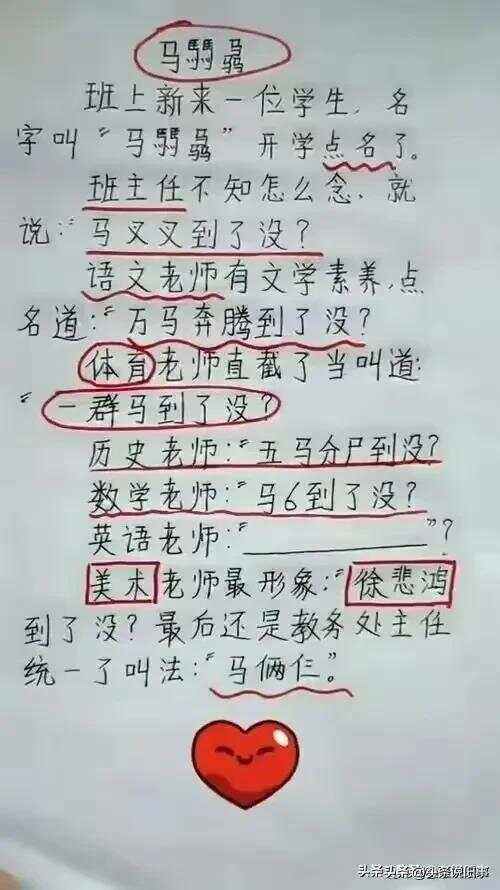 马騳骉
班上新来一位学生,名
字叫“马騳骉”开学点名了。
班主任不知怎么念,就
说:“马叉叉到了没?
语文老师有文学素养,点
名道:“万马奔腾到了没?
体育老师直截了当叫道:
“一群马到了没?
历史老师:“五马分尸到没?
数学老师:“马6到了没?
英语老师:“__________”?
美术老师最形象:“徐悲鸿
到了没?最后还是教务处主任
统一了叫法:“马俩仨”。